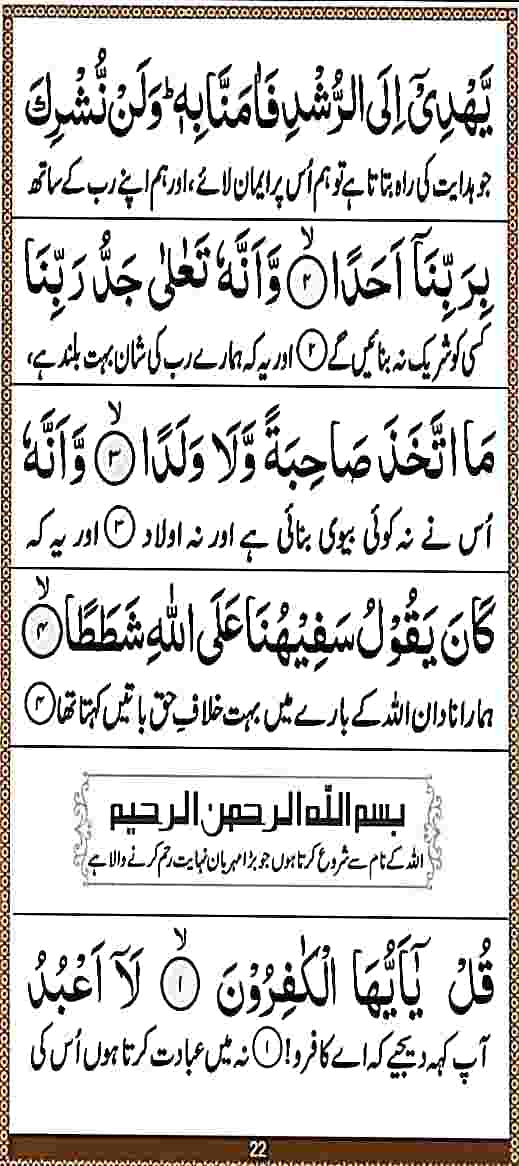 يَّهْدِيْۤ اِلَى الرُّشْدِ فَاٰمَنَّا بِهٖ ؕ وَلَنْ نُّشْرِكَ
جو ہدایت کی راہ بتاتا ہے تو ہم اُس پر ایمان لائے، اور ہم اپنے رب کے ساتھ
بِرَبِّنَاۤ اَحَدًا ۙ﴿۲﴾ وَّاَنَّهٗ تَعٰلٰى جَدُّ رَبِّنَا
کسی کو شریک نہ بنائیں گے ﴿۲﴾ اور یہ کہ ہمارے رب کی شان بہت بلند ہے،
مَا اتَّخَذَ صَاحِبَةً وَّلَا وَلَدًا ۙ﴿۳﴾ وَّاَنَّهٗ
اُس نے نہ کوئی بیوی بنائی ہے اور نہ اولاد ﴿۳﴾ اور یہ کہ
كَانَ يَقُوْلُ سَفِيْهُنَا عَلَى اللّٰهِ شَطَطًا ۙ﴿۴﴾
ہمارا نادان اللہ کے بارے میں بہت خلافِ حق باتیں کہتا تھا ﴿۴﴾
بسم الله الرحمن الرحيم
اللہ کے نام سے شروع کرتا ہوں جو بڑا مہربان نہایت رحم کرنے والا ہے
قُلْ يٰۤاَيُّهَا الْكٰفِرُوْنَ ۙ﴿۱﴾ لَاۤ اَعْبُدُ
آپ کہہ دیجیے کہ اے کافرو! ﴿۱﴾ نہ میں عبادت کرتا ہوں اُس کی
22